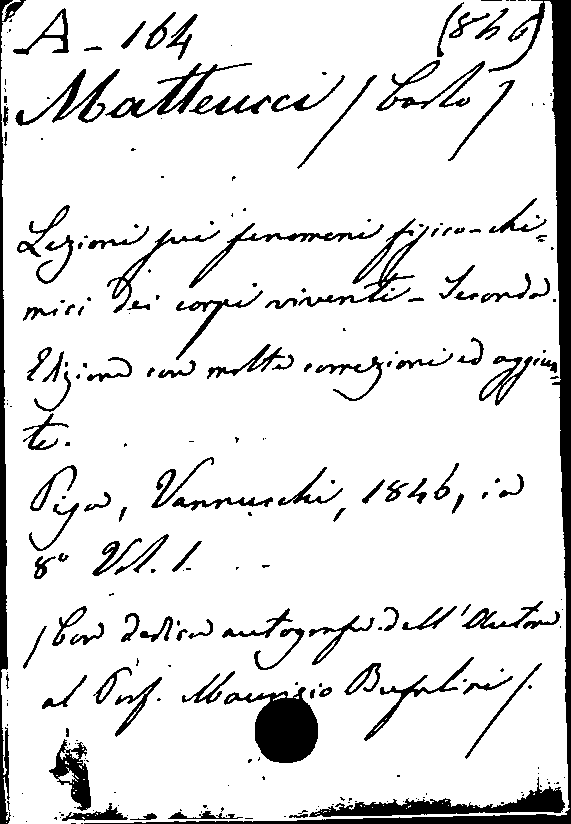 A - 164 (846)
Matteucci / Carlo /
Lezioni sui fenomeni fisico-chi=
mici dei corpi viventi - Seconda
Edizione con molte correzioni ed aggiun=
te.
Pisa, Vannucchi, 1846, in
8° Vol. 1.
/ Con dedica autografa dell'Autore
al Prof. Maurizio Bufalini /.